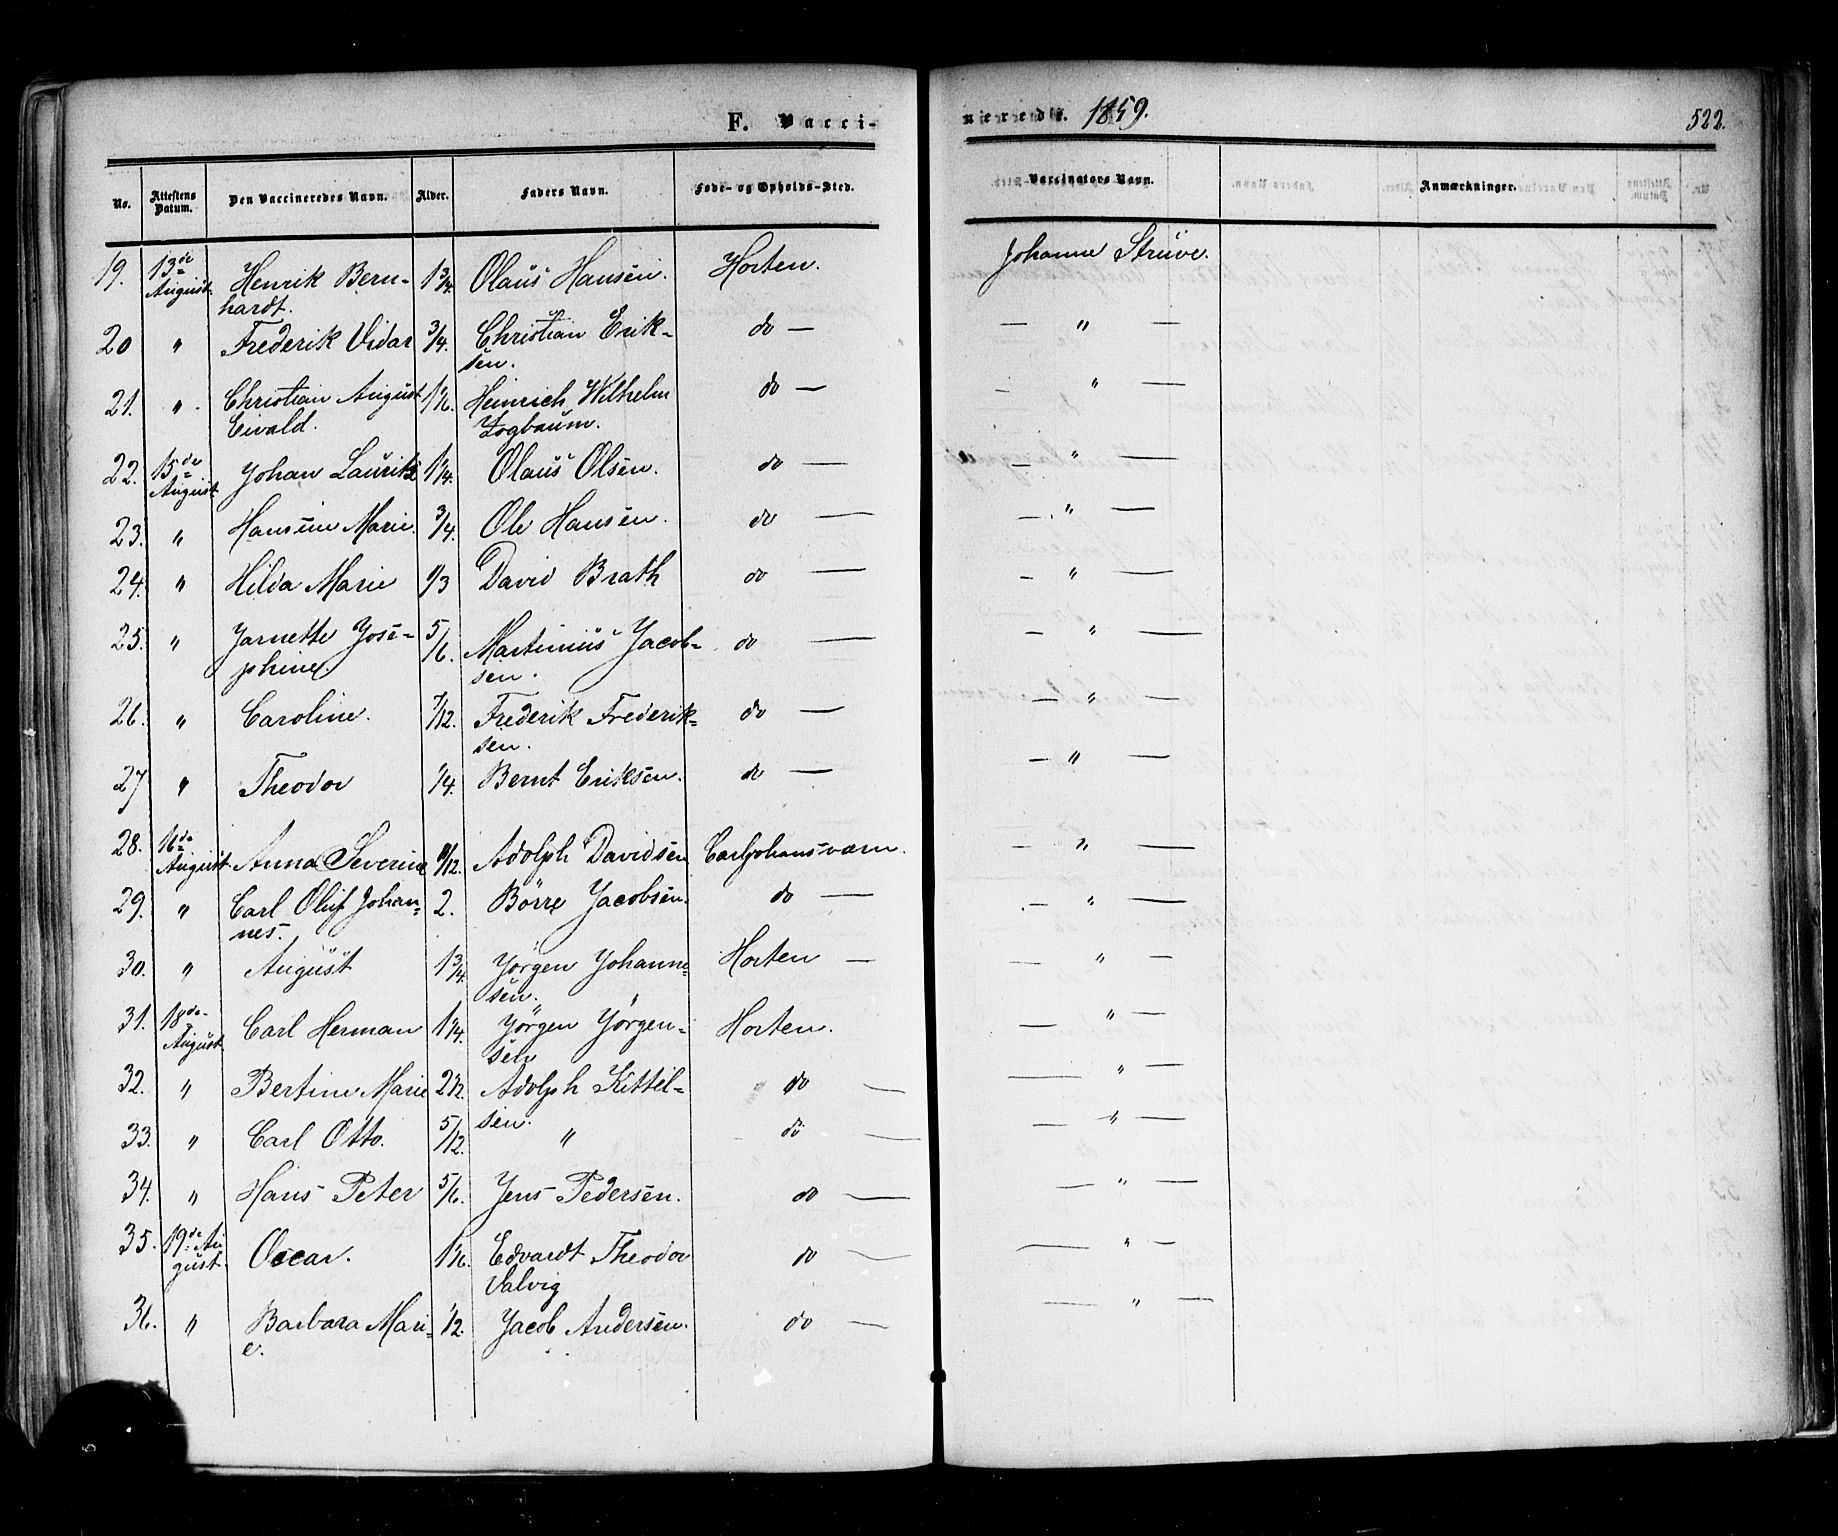 F. Vacci-
nerede. 1859.
522.
No. Attestens Datum. Den Vaccineredes Navn. Alder. Faders Navn. Føde- og Opholds-Sted. Vaccinators Navn. Anmærkninger.
19. 13de August Henrik Bern- 1 3/4. Olaus Hansen. Horten. Johanne Strüve.
hardt.
20 " Frederik Vidar 3/4. Christian Erik- do — — " —
sen.
21. " Christian August 1 1/6. Heinrich Wilhelm do — — " —
Eivald. Zogbaum.
22. 15de August Johan Lauritz 1 1/4. Olaus Olsen. do — — " —
23. " Hansine Marie. 3/4. Ole Hansen. do — — " —
24. " Hilda Marie 1/3 David Brath do — — " —
25. " Jarnette Jose- 5/6. Martinius Jacob- do — — " —
phine. sen.
26. " Caroline. 7/12. Frederik Frederik- do — — " —
sen.
27 " Theodor 1/4. Bernt Eriksen. do — — " —
28. 16de August Anna Severine /12. Adolph Davidsen Carljohansværn. — " —
29. " Carl Oluf Johan- 2. Börre Jacobsen. do — — " —
nes.
30. " August 1 3/4. Jörgen Johanne- Horten — — " —
sen.
31. 18de August Carl Herman 1 1/4. Jörgen Jörgen- Horten. — " —
sen
32. " Bertine Marie 2 1/2. Adolph Kittel- do — — " —
sen.
33. " Carl Otto. 5/12. " do — — " —
34. " Hans Peter 5/6. Jens Pedersen. do — — " —
35. 19de Au- Occar. 1 1/6. Edvardt Theodor do — — " —
gust. Valvig
36. " Barbara Mari- 1/2. Jacob Andersen. do — — " —
e.